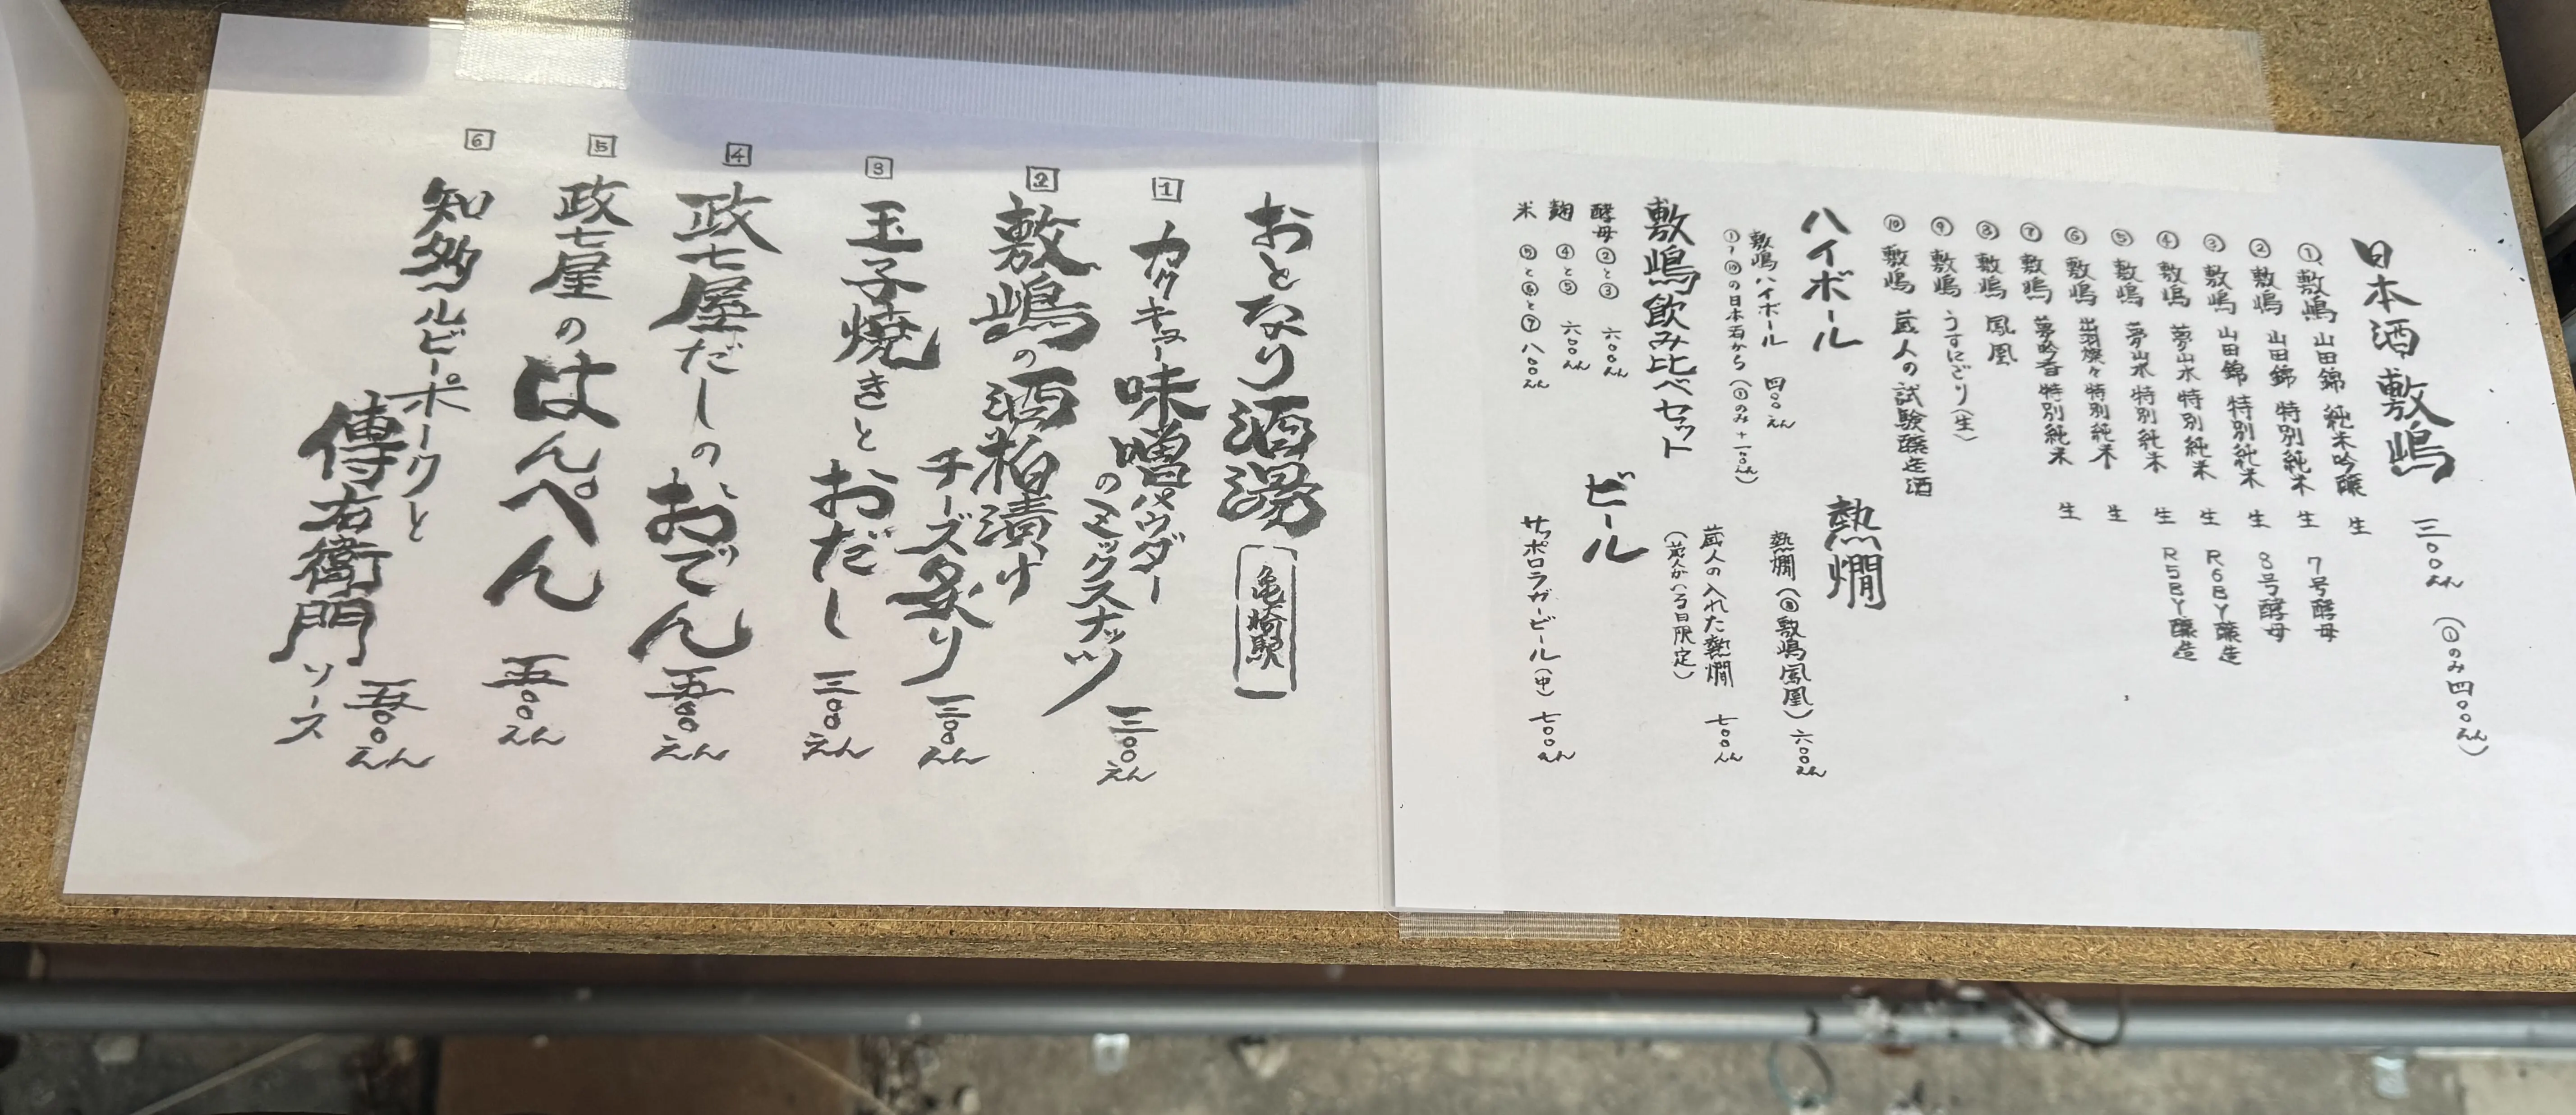 日本酒 敷嶋 三〇〇えん (①のみ四〇〇えん)
① 敷嶋 山田錦 純米吟醸 生
② 敷嶋 山田錦 特別純米 生 7号酵母
③ 敷嶋 山田錦 特別純米 生 8号酵母
④ 敷嶋 夢山水 特別純米 生 R6BY醸造
⑤ 敷嶋 夢山水 特別純米 生 R5BY醸造
⑥ 敷嶋 出羽燦々 特別純米 生
⑦ 敷嶋 夢吟香 特別純米 生
⑧ 敷嶋 鳳凰
⑨ 敷嶋 うすにごり(生)
⑩ 敷嶋 蔵人の試験醸造酒
ハイボール
敷嶋ハイボール 四〇〇えん
①〜⑩の日本酒から (①のみ+一〇〇えん)
熱燗
熱燗(⑧敷嶋鳳凰) 六〇〇えん
蔵人の入れた熱燗 七〇〇えん
(蔵人がいる日限定)
敷嶋飲み比べセット
酵母 ②と③ 六〇〇えん
麹 ④と⑤ 六〇〇えん
米 ⑤と⑥と⑦ 八〇〇えん
ビール
サッポロラガービール(中) 七〇〇えん
おとなり酒場 亀崎駅
1 カクキュー味噌パウダー
のミックスナッツ 三〇〇えん
2 敷嶋の酒粕漬け
チーズ炙り 三〇〇えん
3 玉子焼きとおだし 三〇〇えん
4 政七屋だしのおでん 五〇〇えん
5 政七屋のはんぺん 五〇〇えん
6 知多ルビーポークと
傳右衛門ソース 五〇〇えん